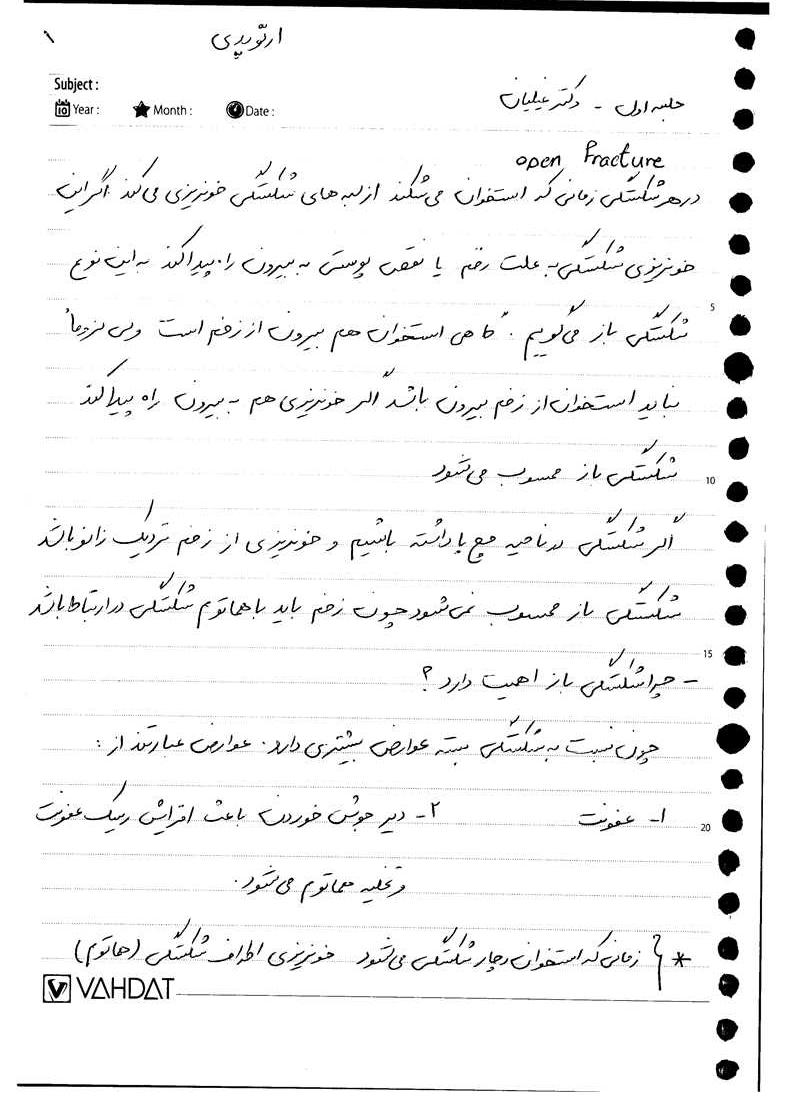 ۱
ارتوپدی
Subject :
Year : Month : Date :
جلسه اول - دکتر
open Fracture
در هر شکستگی زمانی که استخوان می شکند از لبه های شکستگی خونریزی می کند. اگر این
خونریزی شکستگی به علت زخم یا نقص پوستی به بیرون راه پیدا کند به این نوع
5
شکستگی باز می گوییم. گاهی استخوان هم بیرون از زخم است ولی لزوماً
نباید استخوان از زخم بیرون باشد اگر خونریزی هم به بیرون راه پیدا کند
شکستگی باز محسوب می شود
10
اگر شکستگی در ناحیه مچ پا داشته باشیم و خونریزی از زخم نزدیک زانو باشد
شکستگی باز محسوب نمی شود چون زخم باید با هماتوم شکستگی در ارتباط باشد
15
- چرا شکستگی باز اهمیت دارد؟
چون نسبت به شکستگی بسته عوارض بیشتری دارد. عوارض عبارتند از :
۱- عفونت ۲- دیر جوش خوردن باعث افزایش ریسک عفونت
20
و تخلیه هماتوم می شود.
* زمانی که استخوان دچار شکستگی می شود خونریزی اطراف شکستگی (هماتوم)
VAHDAT